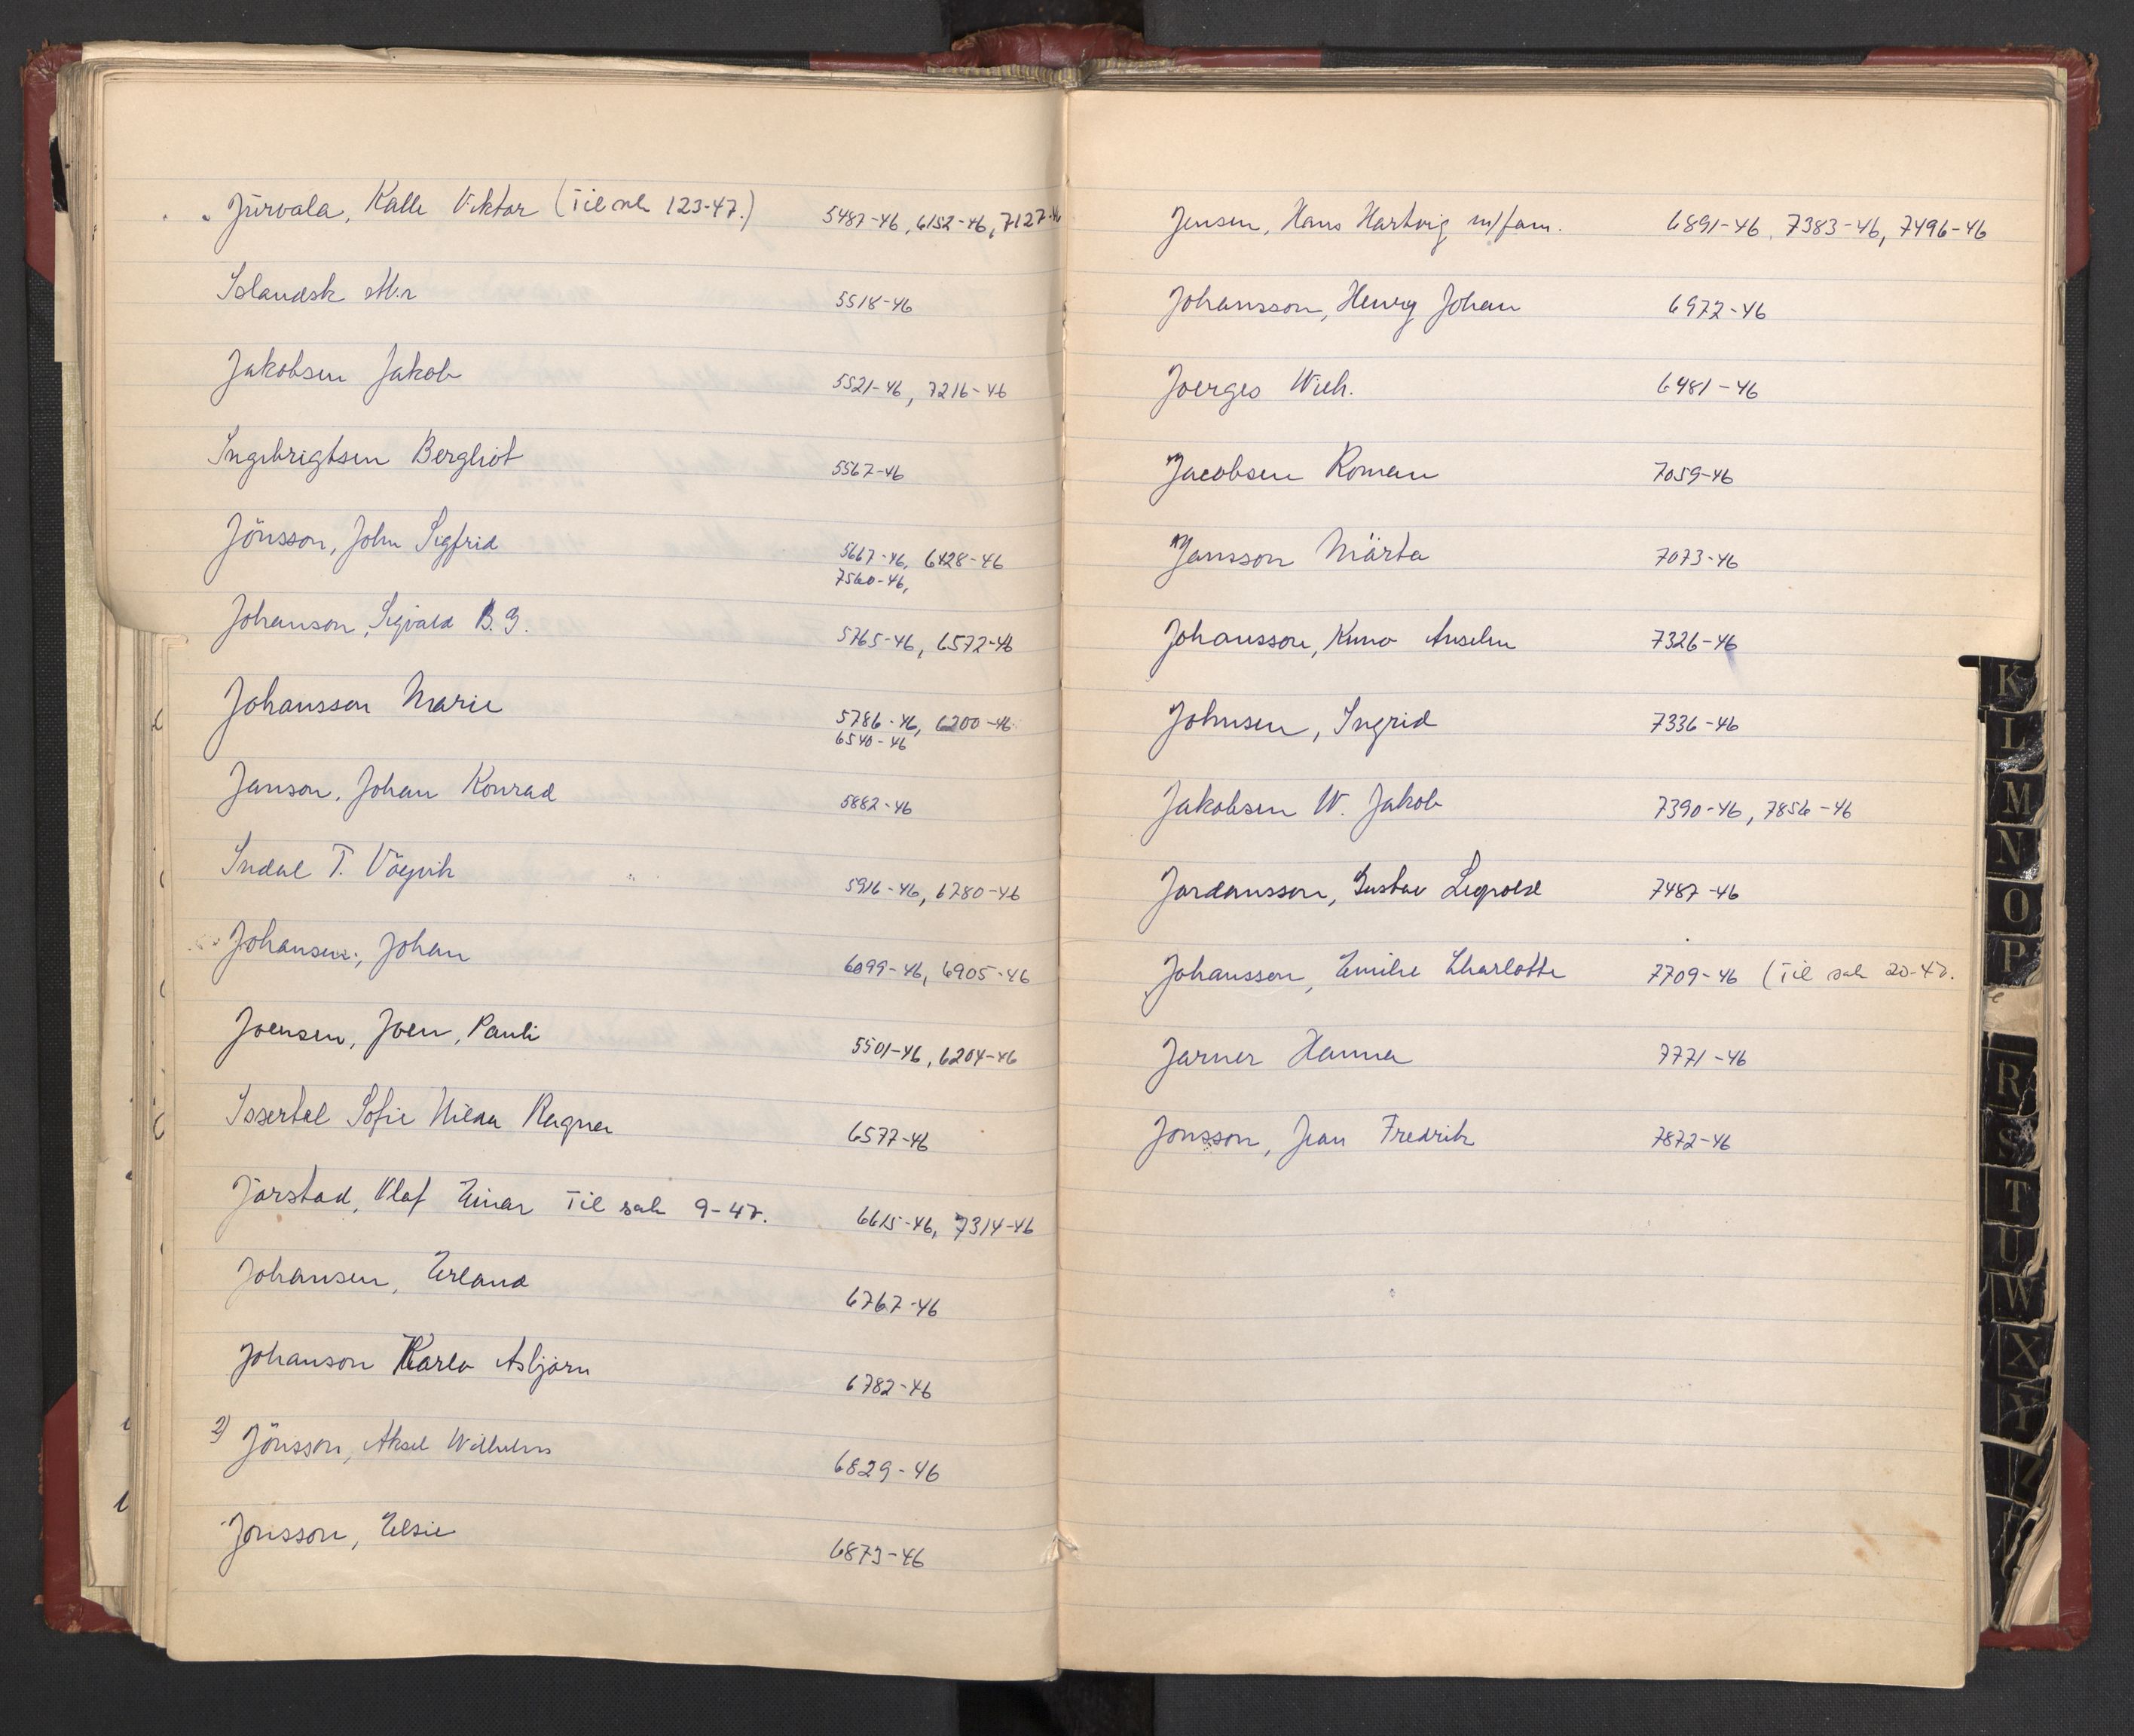 Jürvala, Kalle Viktor (Til sak 123-47.) 5487-46, 6152-46, 7127-46
Islandsk 5518-46
Jakobsen Jakob 5521-46, 7216-46
Ingebrigtsen Bergliot 5567-46
Jönsson, John Sigfrid 5667-46, 6428-46
7560-46,
Johanson, Sigvald B. G. 5765-46, 6572-46
Johansson Marie 5786-46, 6200-46
6540-46
Janson, Johan Konrad 5882-46
Indal T. Vågvik 5916-46, 6780-46
Johansen, Johan 6099-46, 6905-46
Joensen, Joen, Pauli 5501-46, 6204-46
Issertel Sofie Hilda Ragna 6577-46
Jarstad, Olaf Einar Til sak 9-47. 6615-46, 7314-46
Johansen, Erland 6767-46
Johanson Karlo Asbjørn 6782-46
2) Jönsson, Aksel Wilhelm 6829-46
Jonsson, Elsie 6873-46
Jensen, Hans Hartvig m/fam. 6891-46, 7383-46, 7496-46
Johansson, Henry Johan 6972-46
Joerges Wilh. 6981-46
Jacobsen Roman 7059-46
Jansson Märta 7073-46
Johansson, Kuno Anselm 7326-46
Johnsen, Ingrid 7336-46
Jakobsen W. Jakob 7390-46, 7856-46
Jordansson, Gustav Leopold 7487-46
Johansson, Emilie Charlotte 7709-46 (Til sak 20-47.
Jarner Hanna 7771-46
Jonsson, Jean Fredrik 7872-46
K
L
M
N
O
P
R
S
T
U
W
X
Y
Z